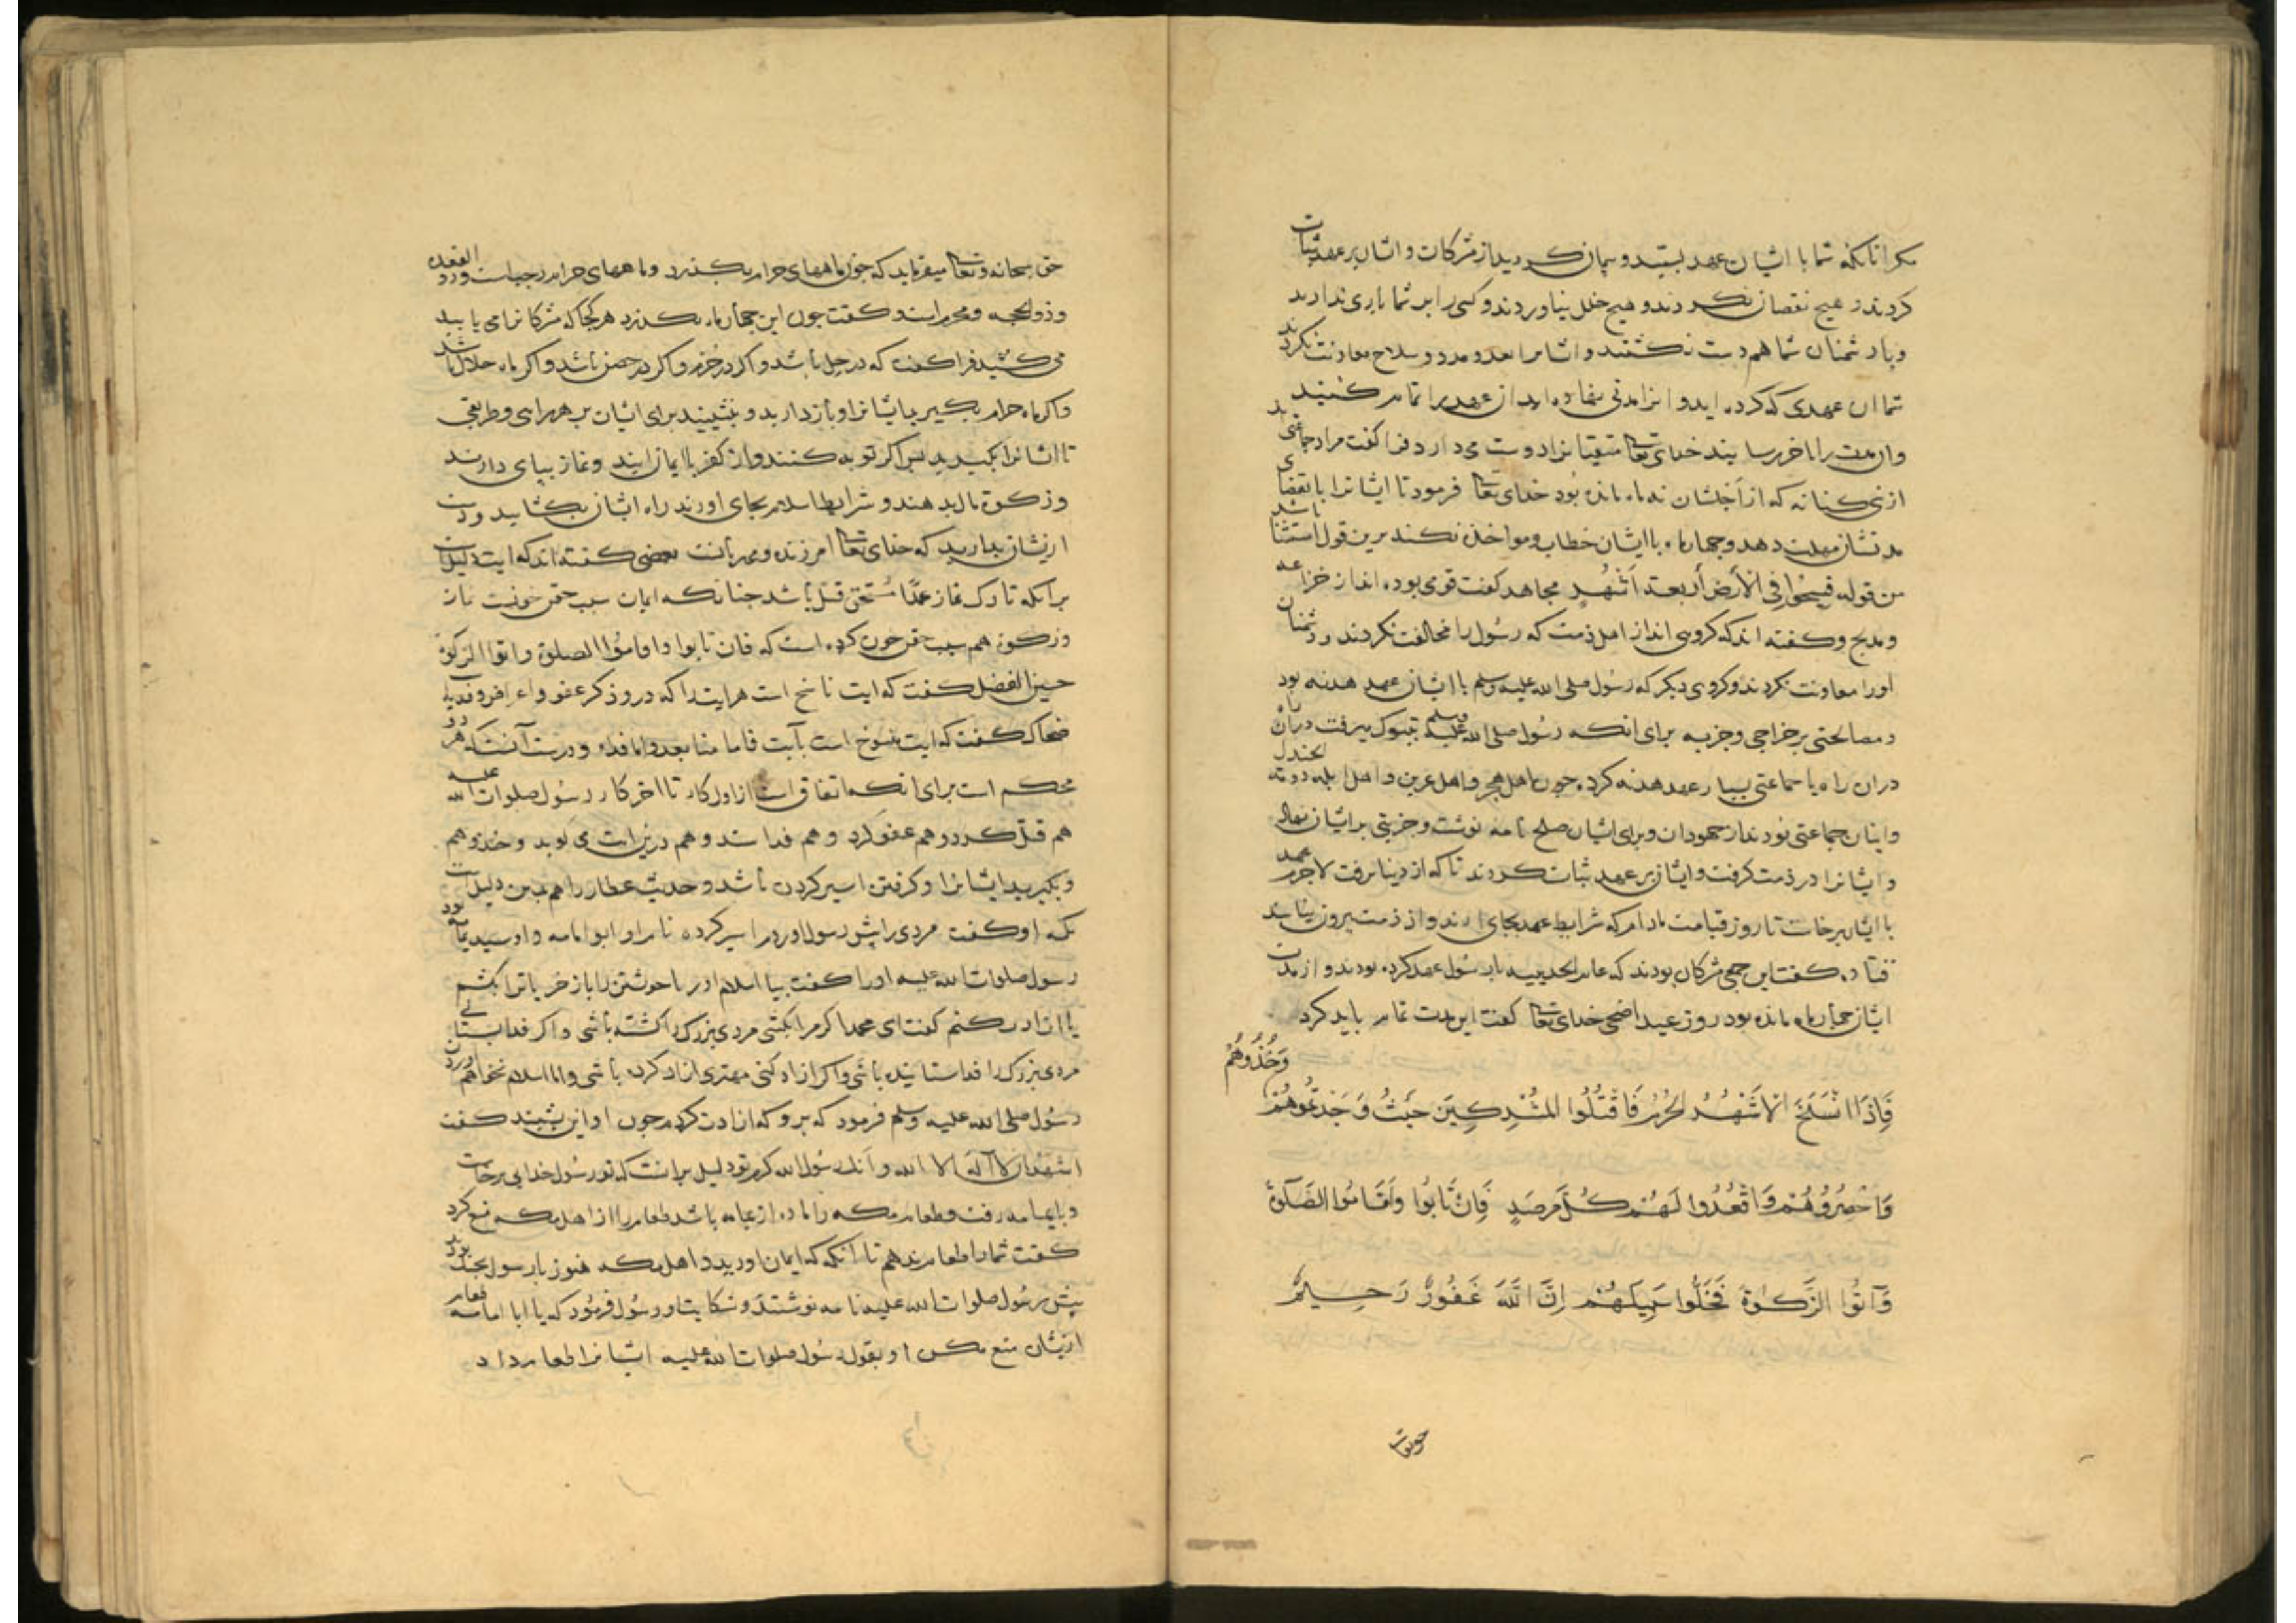 مکر انانکه شما با ایشان عهد بستید و پیمان کردید از مشرکات و ایشان بر عهد ثبات
کردند و هیچ نقصان نکردند و هیچ خلل نیاوردند و کسی را بر شما یاری ندادند
و با دشمنان شما هم دست نکشتند و ایشانرا بعدد و مدد و سلاح معاونت نکردند
شما ان عهدی که کرده اید و انرا مدتی نهاده اید ان عهد را تمام کنید
وان مدت را باخر رسانید خدای تعالی متقیانرا دوست می دارد فرا گفت مراد جماعتی اند
از بنی کنانه که از اجلشان نه ماه مانده بود خدای تعالی فرمود تا ایشانرا بانقضای
مدتشان مهلت دهد و چهار ماه با ایشان خطاب و مواخذه نکند برین قول استثنا باشد
من قوله فسیحوا فی الأرض أربعة أشهر مجاهد کفت قومی بوده اند از خزاعه
و مدلج و کفته اند که کروهی اند از اهل ذمت که رسول را مخالفت نکردند و دشمنان
اورا معاونت نکردند و کروهی دیکر که رسول صلی الله علیه وسلم با ایشان عهد هدنه بود
و مصالحتی بر خراجی و جزیه برای انکه رسول صلی الله علیه وسلم بتبوک میرفت
دران راه با جماعتی بسیار عهد هدنه کرد چون اهل هجر و اهل بحرین و اهل ایله و دومة الجندل
و اینان جماعتی بودند از جهودان و برای ایشان صلح نامه نوشت و جزیتی بر ایشان نهاد
و ایشانرا در ذمت کرفت و ایشان بر عهد ثبات کردند تا که از دنیا برفت لاجرم عهد
با ایشان برخاست تا روز قیامت مادام که شرایط عهد بجای ارند و از ذمت بیرون نیایند
قتاده کفت این جمعی مشرکان بودند که عام الحدیبیه با رسول عهد کرده بودند و از مدت
ایشان چهار ماه مانده بود روز عید اضحی خدای تعالی کفت این مدت تمام باید کرد
فَاِذَا انْسَلَخَ الاَشْهُرُ الحُرُمُ فَاقْتُلُوا المُشْرِكِينَ حَيْثُ وَجَدْتُمُوهُمْ وَخُذُوهُمْ
وَاحْصُرُوهُمْ وَاقْعُدُوا لَهُمْ كُلَّ مَرصَدٍ فَاِنْ تَابُوا وَاَقَامُوا الصَّلَوٰةَ
وَآتَوُا الزَّكَوٰةَ فَخَلُّوا سَبِيلَهُمْ اِنَّ اللَّهَ غَفُورٌ رَحِيمٌ
حق سبحانه و تعالی میفرماید که چون ماههای حرام بکذرد و ماههای حرام رجبست و ذو القعده
و ذو الحجه و محرم است و کفت چون این چهار ماه بکذرد هر کجا که مشرکانرا می یابید
می کشید فرا کفت که در حل باشد و اکر در حرم و اکر در حصن باشد و اکر ماه حلال باشد
و اکر ماه حرام بکیرید ایشانرا و باز دارید و بنشینید برای ایشان بر هر راهی و طریقی
تا ایشانرا بکیرید پس اکر توبه کنند و از کفر با ایمان ایند و نماز بپای دارند
و زکوة مال بدهند و شرایط اسلام بجای اورند راه ایشان بکشایید و دست
از یشان بدارید که خدای تعالی امرزنده و مهربانست بعضی کفته اند که ایت دلیلست
برانکه تارک نماز عمدا مستحق قتل باشد چنانکه ایمان سبب حقن خونست نماز
و زکوة هم سبب حقن خون کرده است که فان تابوا واقاموا الصلوة واتوا الزکوة
حسین الفضل کفت که ایت ناسخ است هر ایت را که درو ذکر عفو و اعراض و فدیه
ضحاک کفت که ایت منسوخ است بآیت فاما منا بعد واما فداء و درست آنست که هر دو
محکم است برای انکه اتفاق است از اول کار تا اخر کار رسول صلوات الله علیه
هم قتل کرد و هم عفو کرد و هم فدا ستد و هم درین ایت می کوید وخذوهم
و بکیرید ایشانرا و کرفتن اسیر کردن باشد و حدیث عطار را هم بدین دلیلست
رسول صلوات الله علیه اورا کفت بیا اسلام اور یا خویشتن را باز خر یا ترا بکشم
یا ازادت کنم کفت ای محمد اکر مرا بکشی مردی بزرک را کشته باشی و اکر فدا بستانی
مردی بزرک را فدا ستانیده باشی و اکر ازاد کنی مهتری ازاد کرده باشی و اما اسلام نخواهم اوردن
رسول صلی الله علیه وسلم فرمود که برو که ازادت کردم چون او این بشنید کفت
اشهد ان لا آله الا الله و انک رسول الله کرم تو دلیل برانست که تو رسول خدایی برخاست
و بایمامه رفت و طعام مکه را ماده از یمامه باشد طعام را از اهل مکه منع کرد
کفت شمارا طعام ندهم تا انکه که ایمان اورید و اهل مکه هنوز با رسول بجنک بودند
پیش رسول صلوات الله علیه نامه نوشتند و شکایت او رسول فرمود که یا ابا امامه طعام
ازیشان منع مکن او بقول رسول صلوات الله علیه ایشانرا طعام داد